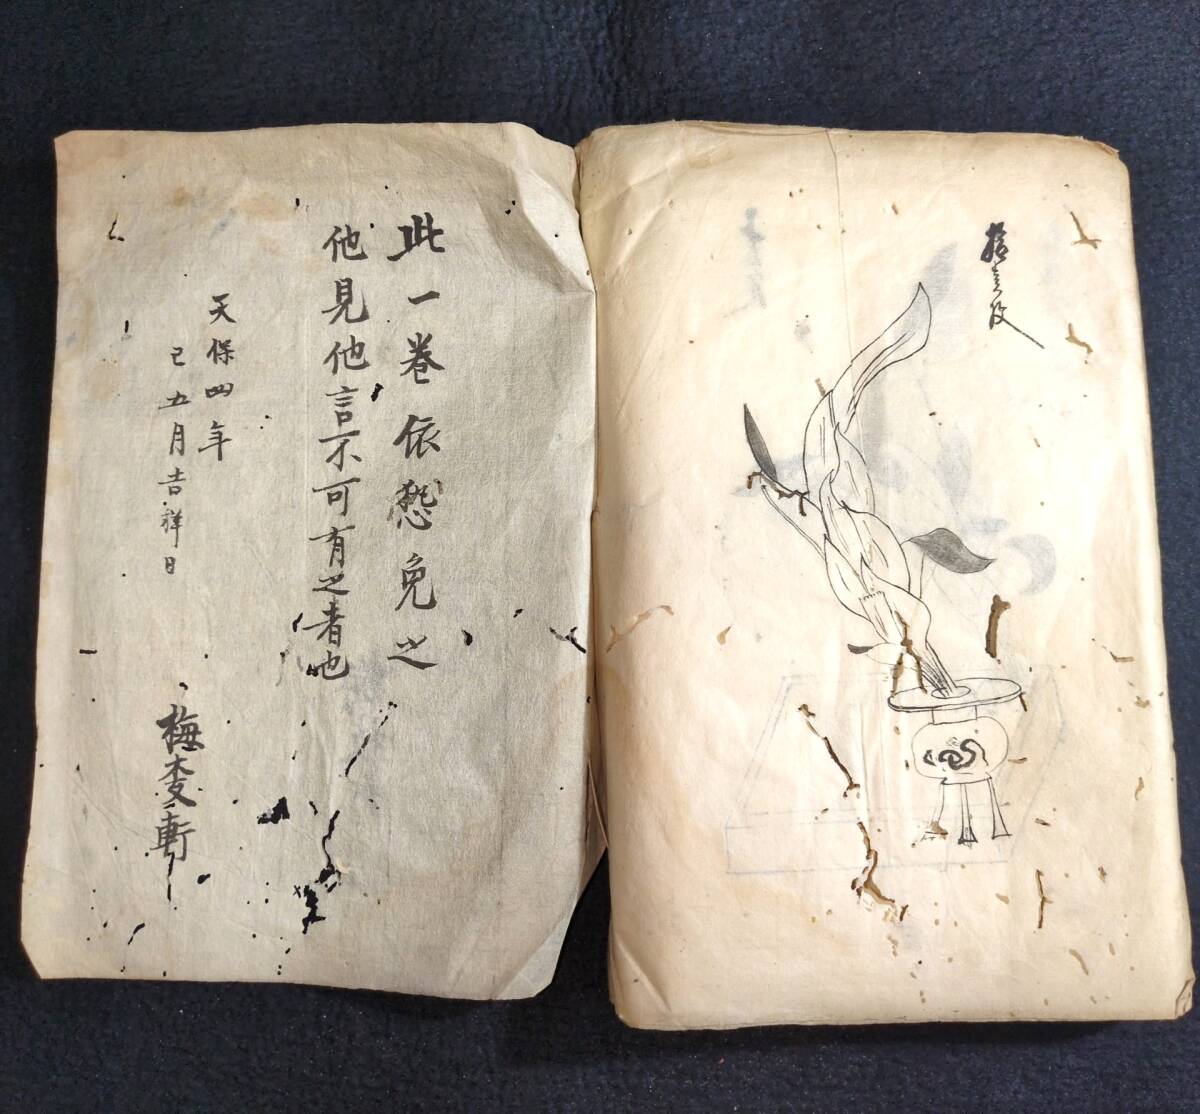 此一巻依免之
他見他言不可有之者也
天保四年
巳五月吉祥日
梅軒